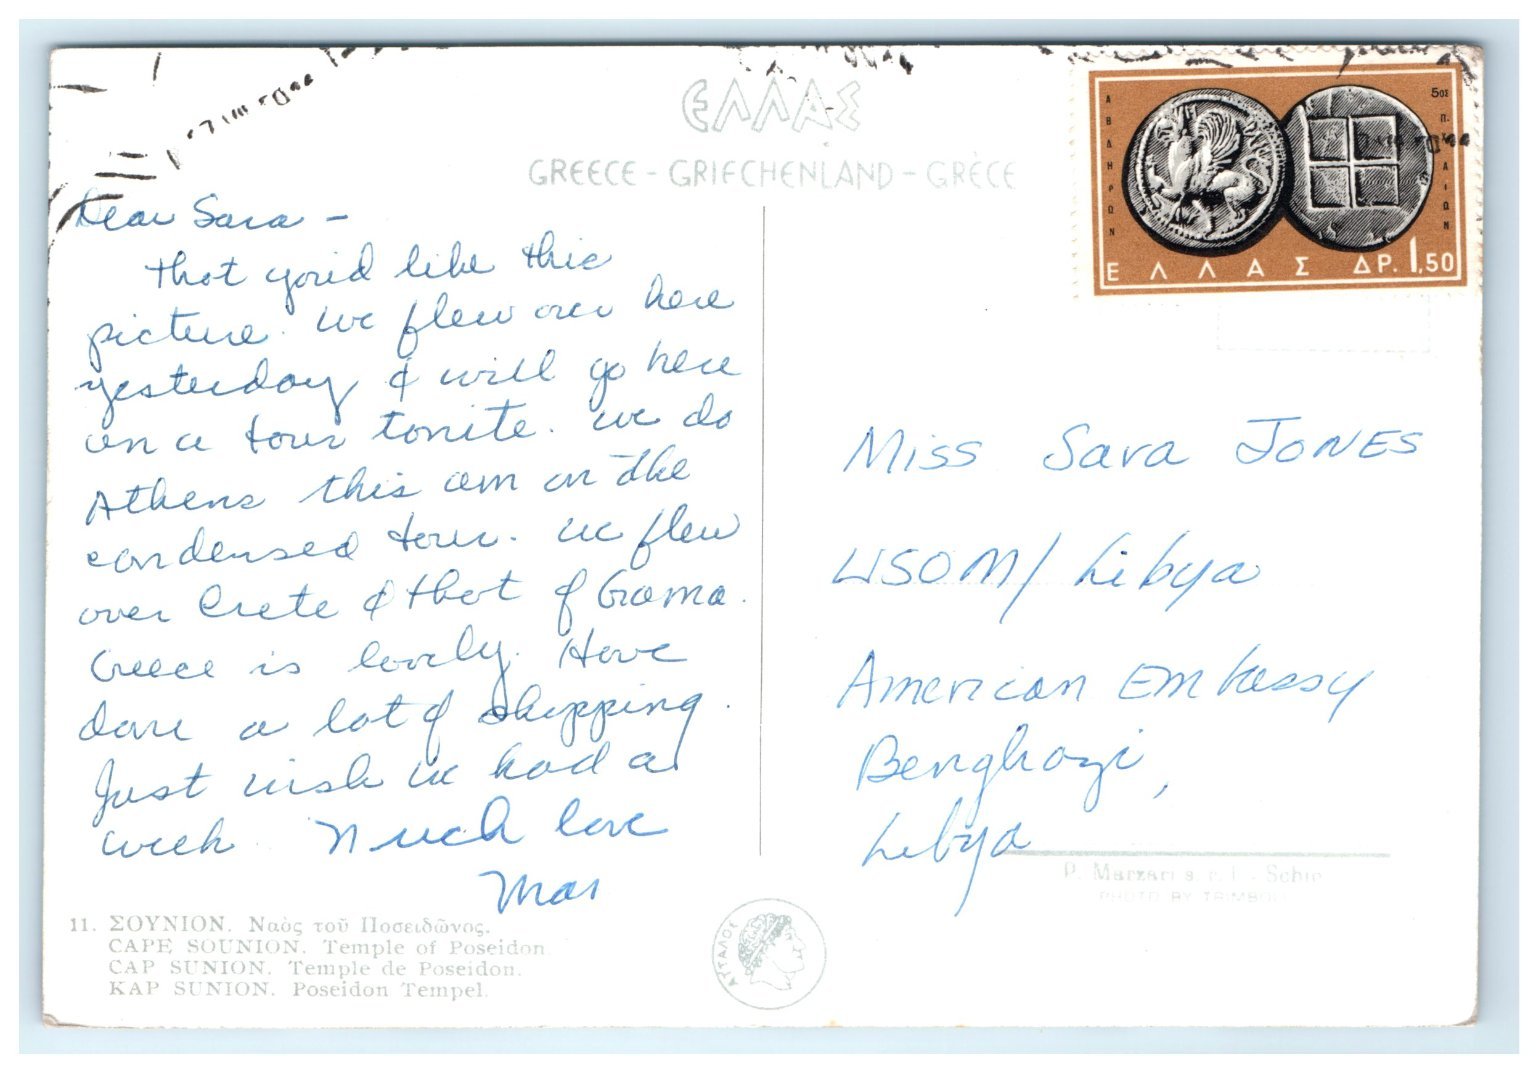 ΕΛΛΑΣ
GREECE - GRIECHENLAND - GRÈCE
ΑΒΔΗΡΩΝ
5ος Π.Χ. ΑΙΩΝ
ΕΛΛΑΣ ΔΡ. 1,50
Dear Sara -
That you'd like this
picture. We flew over here
yesterday & will go here
on a tour tonite. We do
Athens this am on the
condensed tour. We flew
over Crete & that of Gama.
Greece is lovely. Have
done a lot of shopping.
Just wish we had a
week. Much love
Miss Sara JONES
USOM/Libya
American Embassy
Benghazi,
Libya
P. Marzari s. r. l. - Schio
PHOTO BY TRIMBOLI
11. ΣΟΥΝΙΟΝ. Ναὸς τοῦ Ποσειδῶνος.
CAPE SOUNION. Temple of Poseidon.
CAP SUNION. Temple de Poseidon.
KAP SUNION. Poseidon Tempel.
ΑΤΤΑΛΟΣ